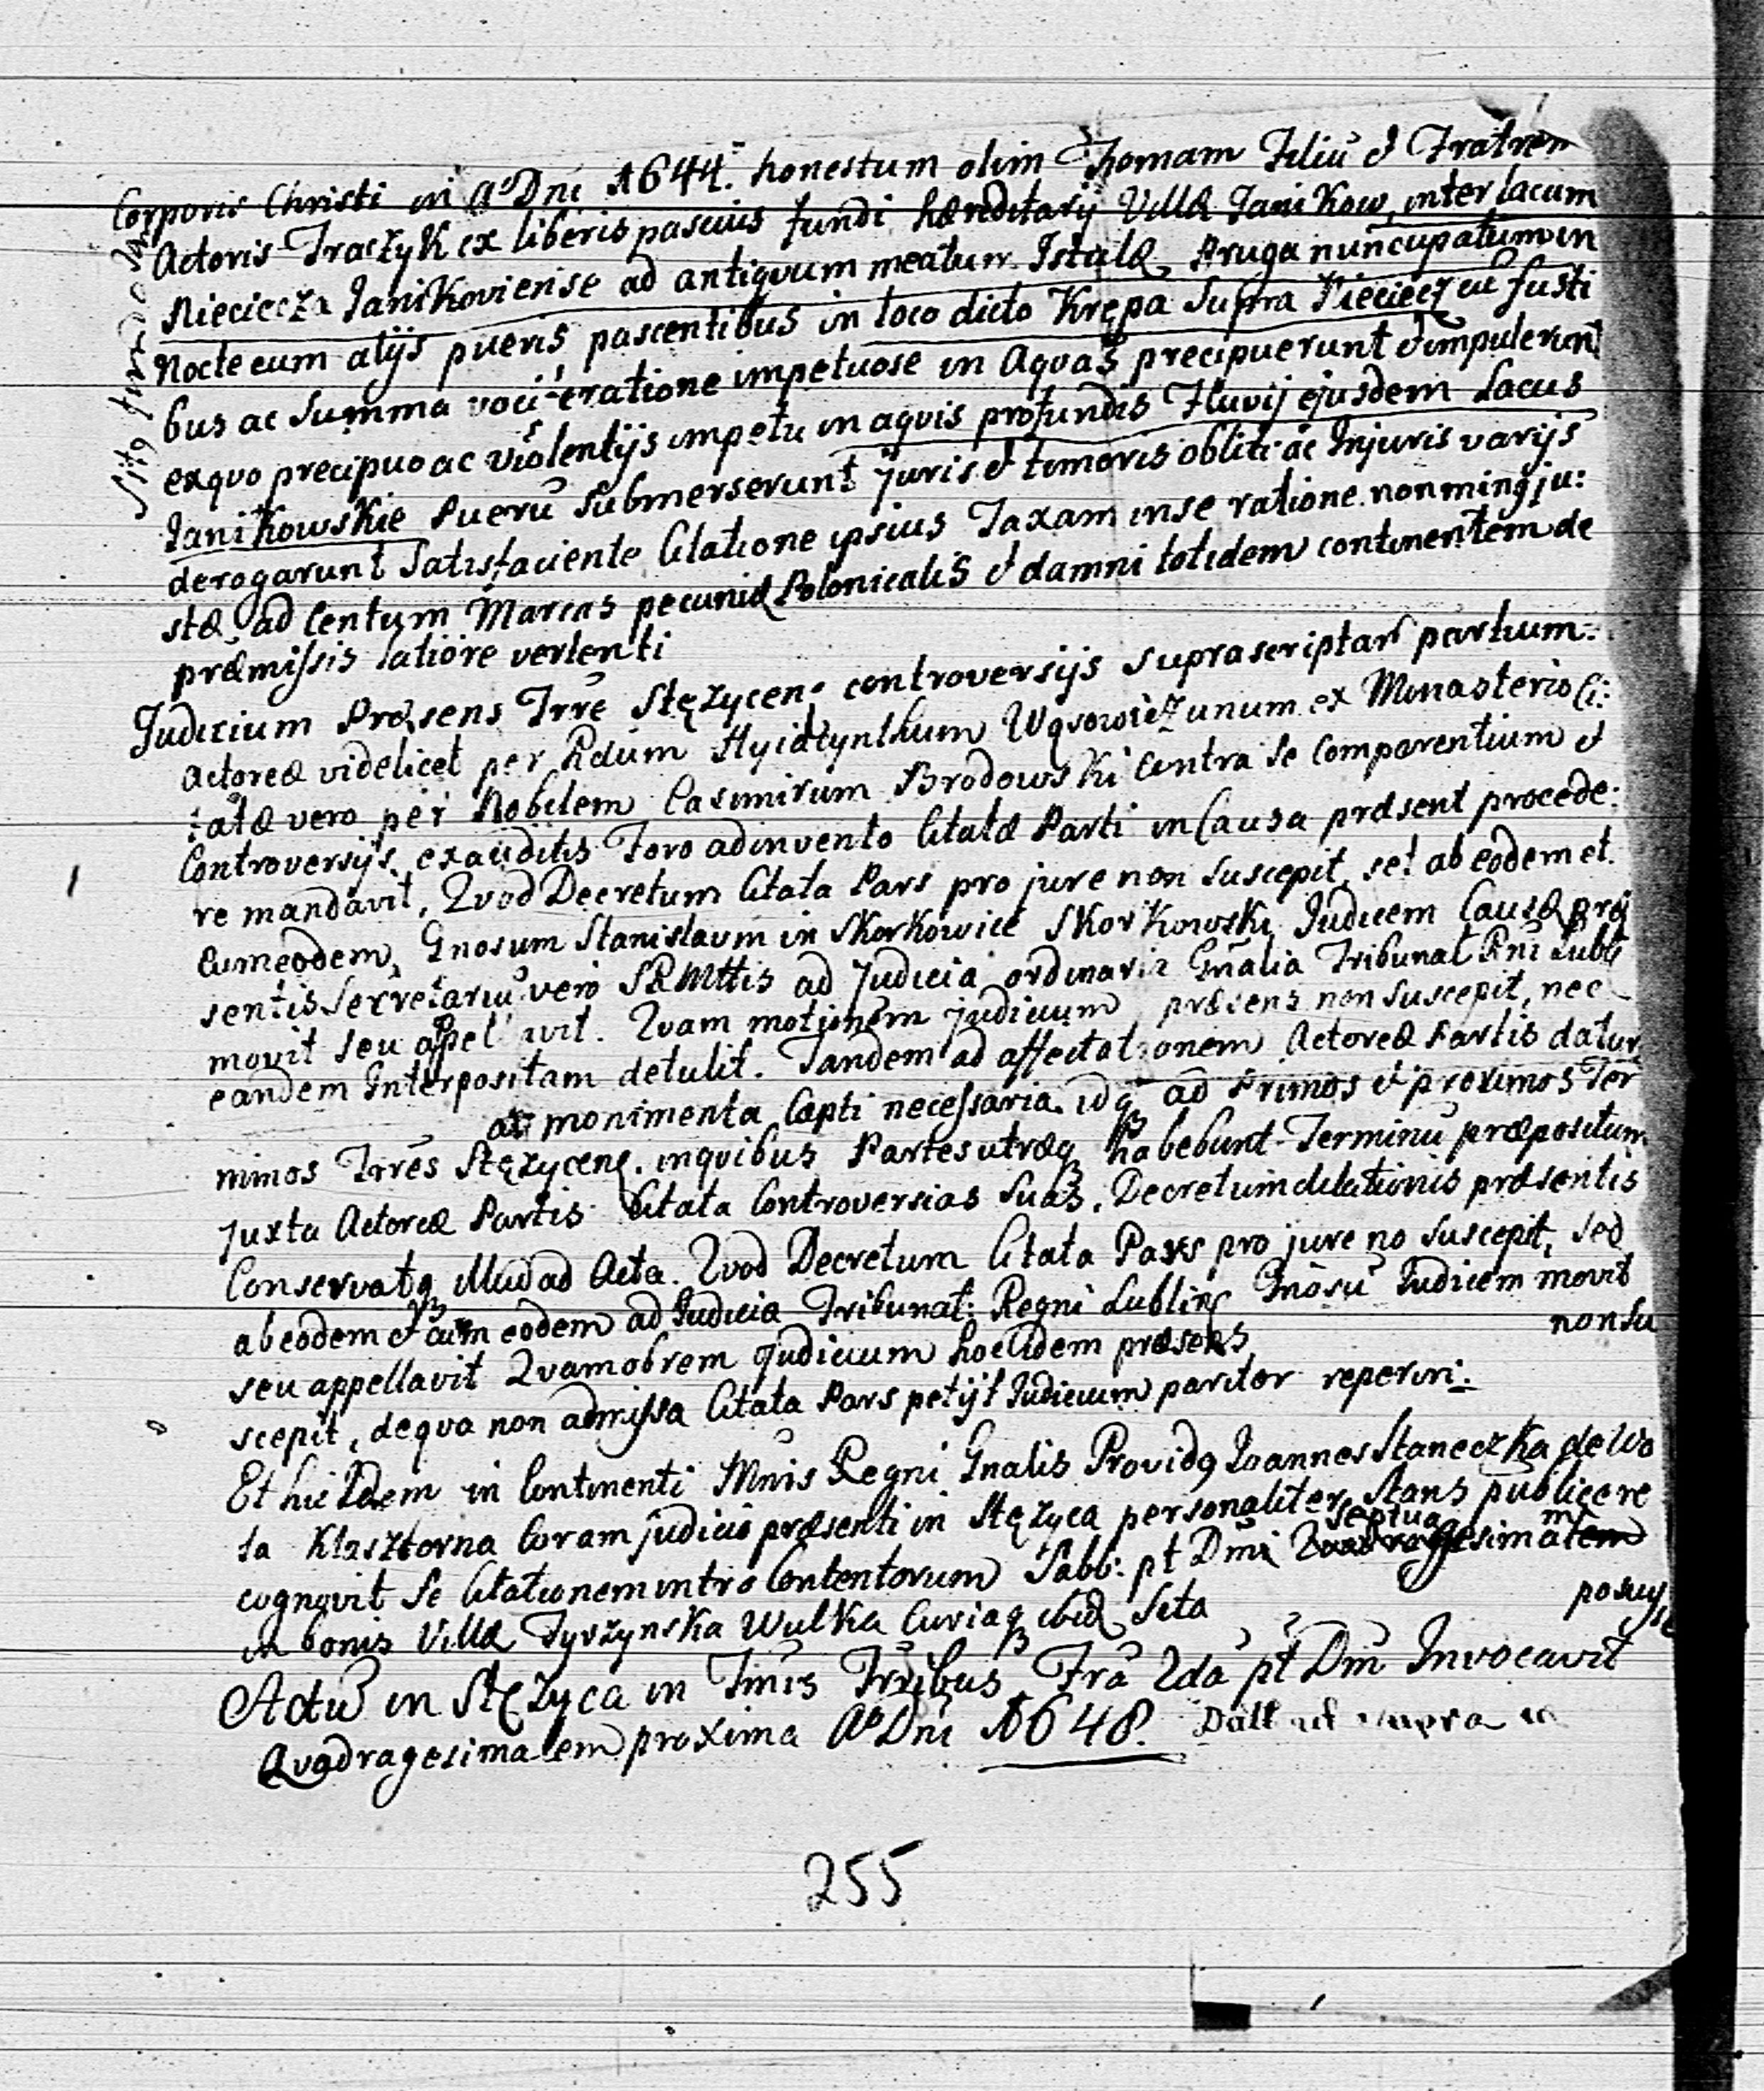 Corporis Christi in Aō Dni 1644. honestum olim Thomam Filiū et Fratrem
Actoris Traczyk ex liberis pascuis fundi hæreditarij Villæ Janikow, inter lacum
Nieciecza Janikoviense ad antiquum meatum Istulæ Struga nuncupatum in
Nocte cum alijs pueris pascentibus in loco dicto Krępa supra Nieciecz ac fusti
bus ac summa vociferatione impetuose in Aquas precipuerunt et impulerunt
ex quo precipuo ac violentijs impetu in aquis profundis Fluvij ejusdem Lacus
Janikowskie Puerū submerserunt juris et timoris obliti ac Injuris varijs
derogarunt Satisfaciente Citatione ipsius Taxam in se ratione non minq ju:
stæ ad Centum Marcas pecuniæ Polonicalis et damni totidem continentem de
præmissis latiore vertenti
Judicium Præsens Trre Stęzycen: controversijs suprascriptar partium:
Actoreæ videlicet per Rdum Hyiacynthum Wąsowicz unum ex Monasterio Ci:
tatæ vero per Nobilem Casimirum Brodowski Contra se Comparentium et
Controversijs exauditis Foro adinvento Citatæ Parti in Causa præsent procede:
re mandavit, Quod Decretum Citata Pars pro jure non suscepit, set ab eodem et
cum eodem, Gnosum Stanislaum in Skorkowice Skorkowski Judicem Causæ præ
sentis Secretariū vero SRMttis ad Judicia ordinaria Gnalia Tribunal Rni Lubl
movit seu appel avit. Quam motionem judicium præsens non suscepit, nec
eandem Interpositam detulit. Tandem ad affectationem Actoreæ Partis datur
ad monimenta Capti necessaria idq ad Primos et proximos Ter
minos Trres Stęzycen. in quibus Partes utræq habebunt Terminū præpositum
juxta Actoreæ Partis Citata Controversias suas. Decretum dilationis præsentis
Conservatq illud ad Acta. Quod Decretum Citata Pars pro jure no suscepit, sed
ab eodem et cum eodem ad Judicia Tribunal: Regni Lublin Gnosū Judicem movit
seu appellavit Quamobrem judicium hoc Idem præsens non su
scepit, de qua non admissa Citata Pars petijt Judicium pariter reperiri:
Et hic Idem in Continenti Mnis Regni Gnalis Providq Joannes Staneczka de Wo
la Klasztorna Coram judicio præsenti in Stęzyca personaliter stans publice re
cognovit se Citationem intro Contentorum Sabb: pt Dmi septuagesimam posuisse
in bonis Villæ Tyrzynska Wulka Curiaq ibid sita
Actū in Stęzyca in Tmis Trribus Fra 2da pt Dm Invocavit
Quadragesimalem proxima Aō Dni 1648. Datt ut supra
255